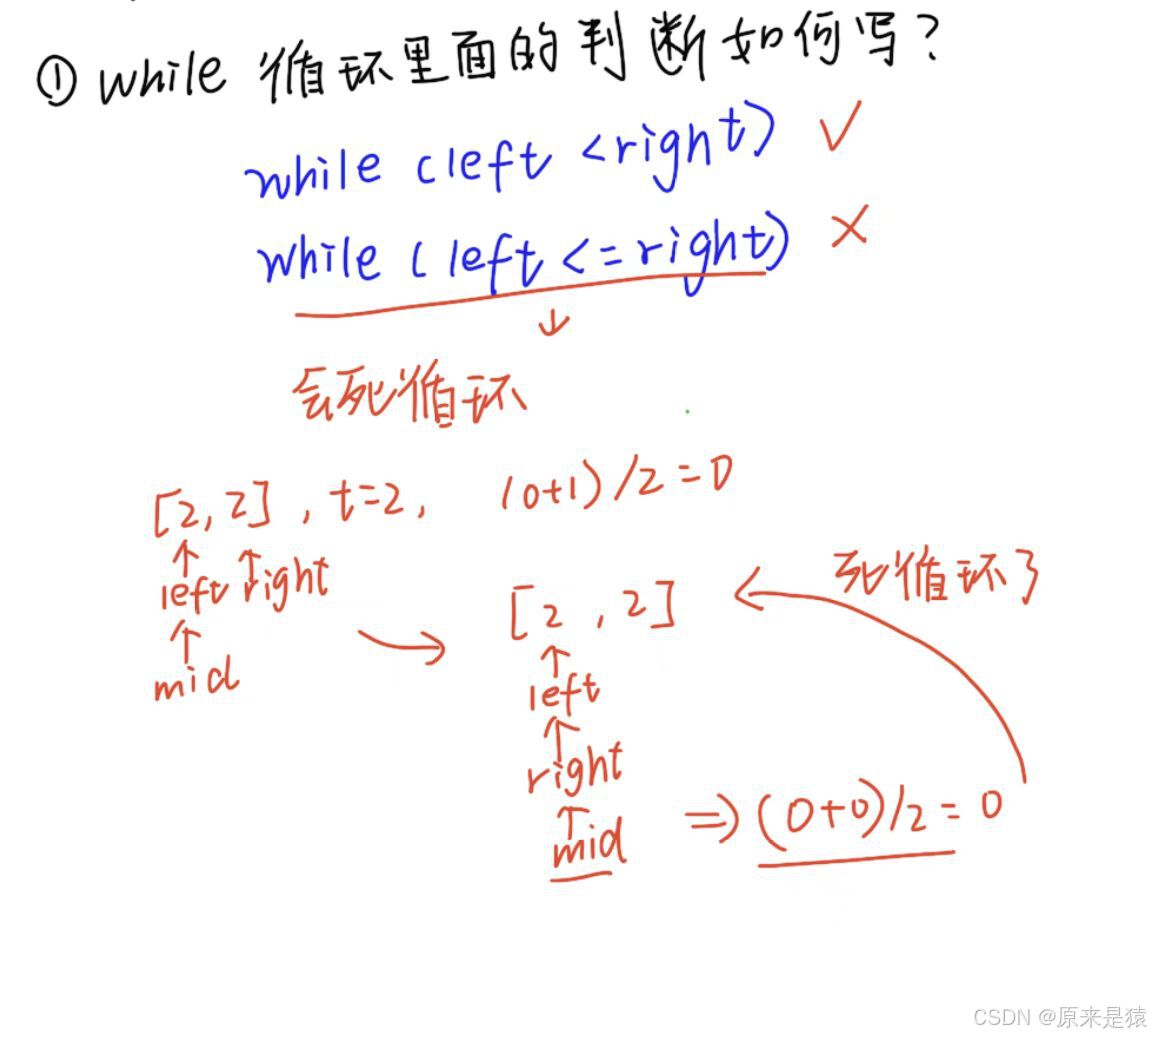 ① while 循环里面的判断如何写？
while (left <right) ✓
while (left <= right) ×
↓
会死循环
[2, 2] , t=2, (0+1)/2=0
↑ ↑
left right
↑
mid
死循环了
[2 , 2]
↑
left
↑
right
↑
mid ⇒ (0+0)/2 = 0
CSDN @原来是猿